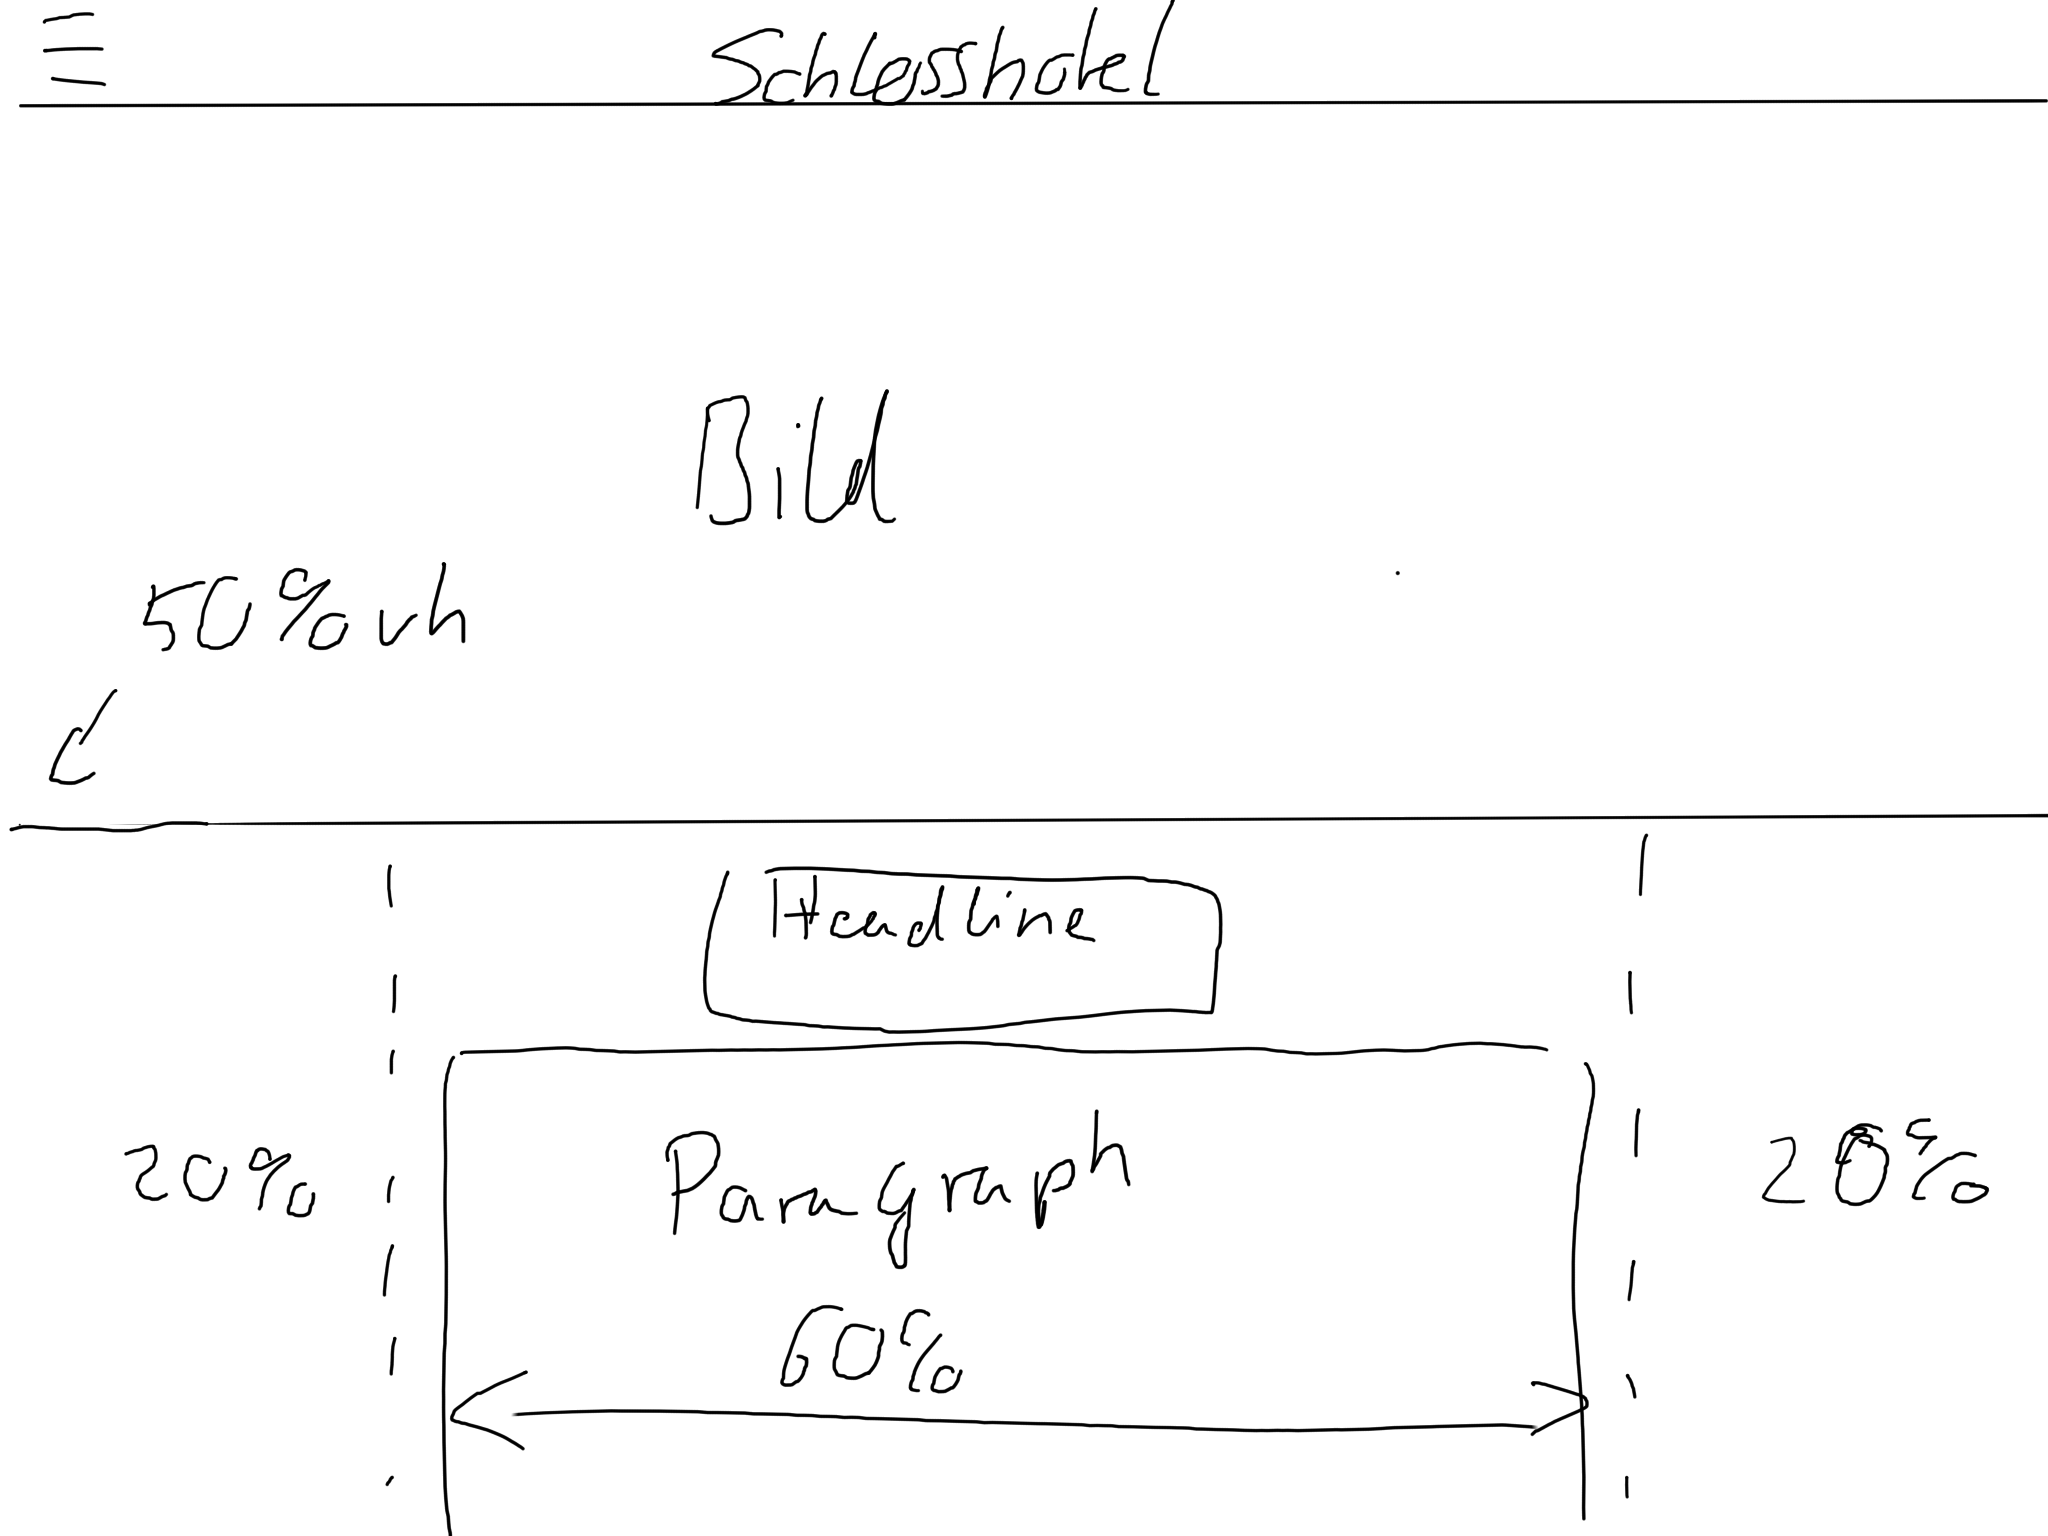 Schlosshotel
Bild
50%vh
Headline
20%
Paragraph
20%
60%